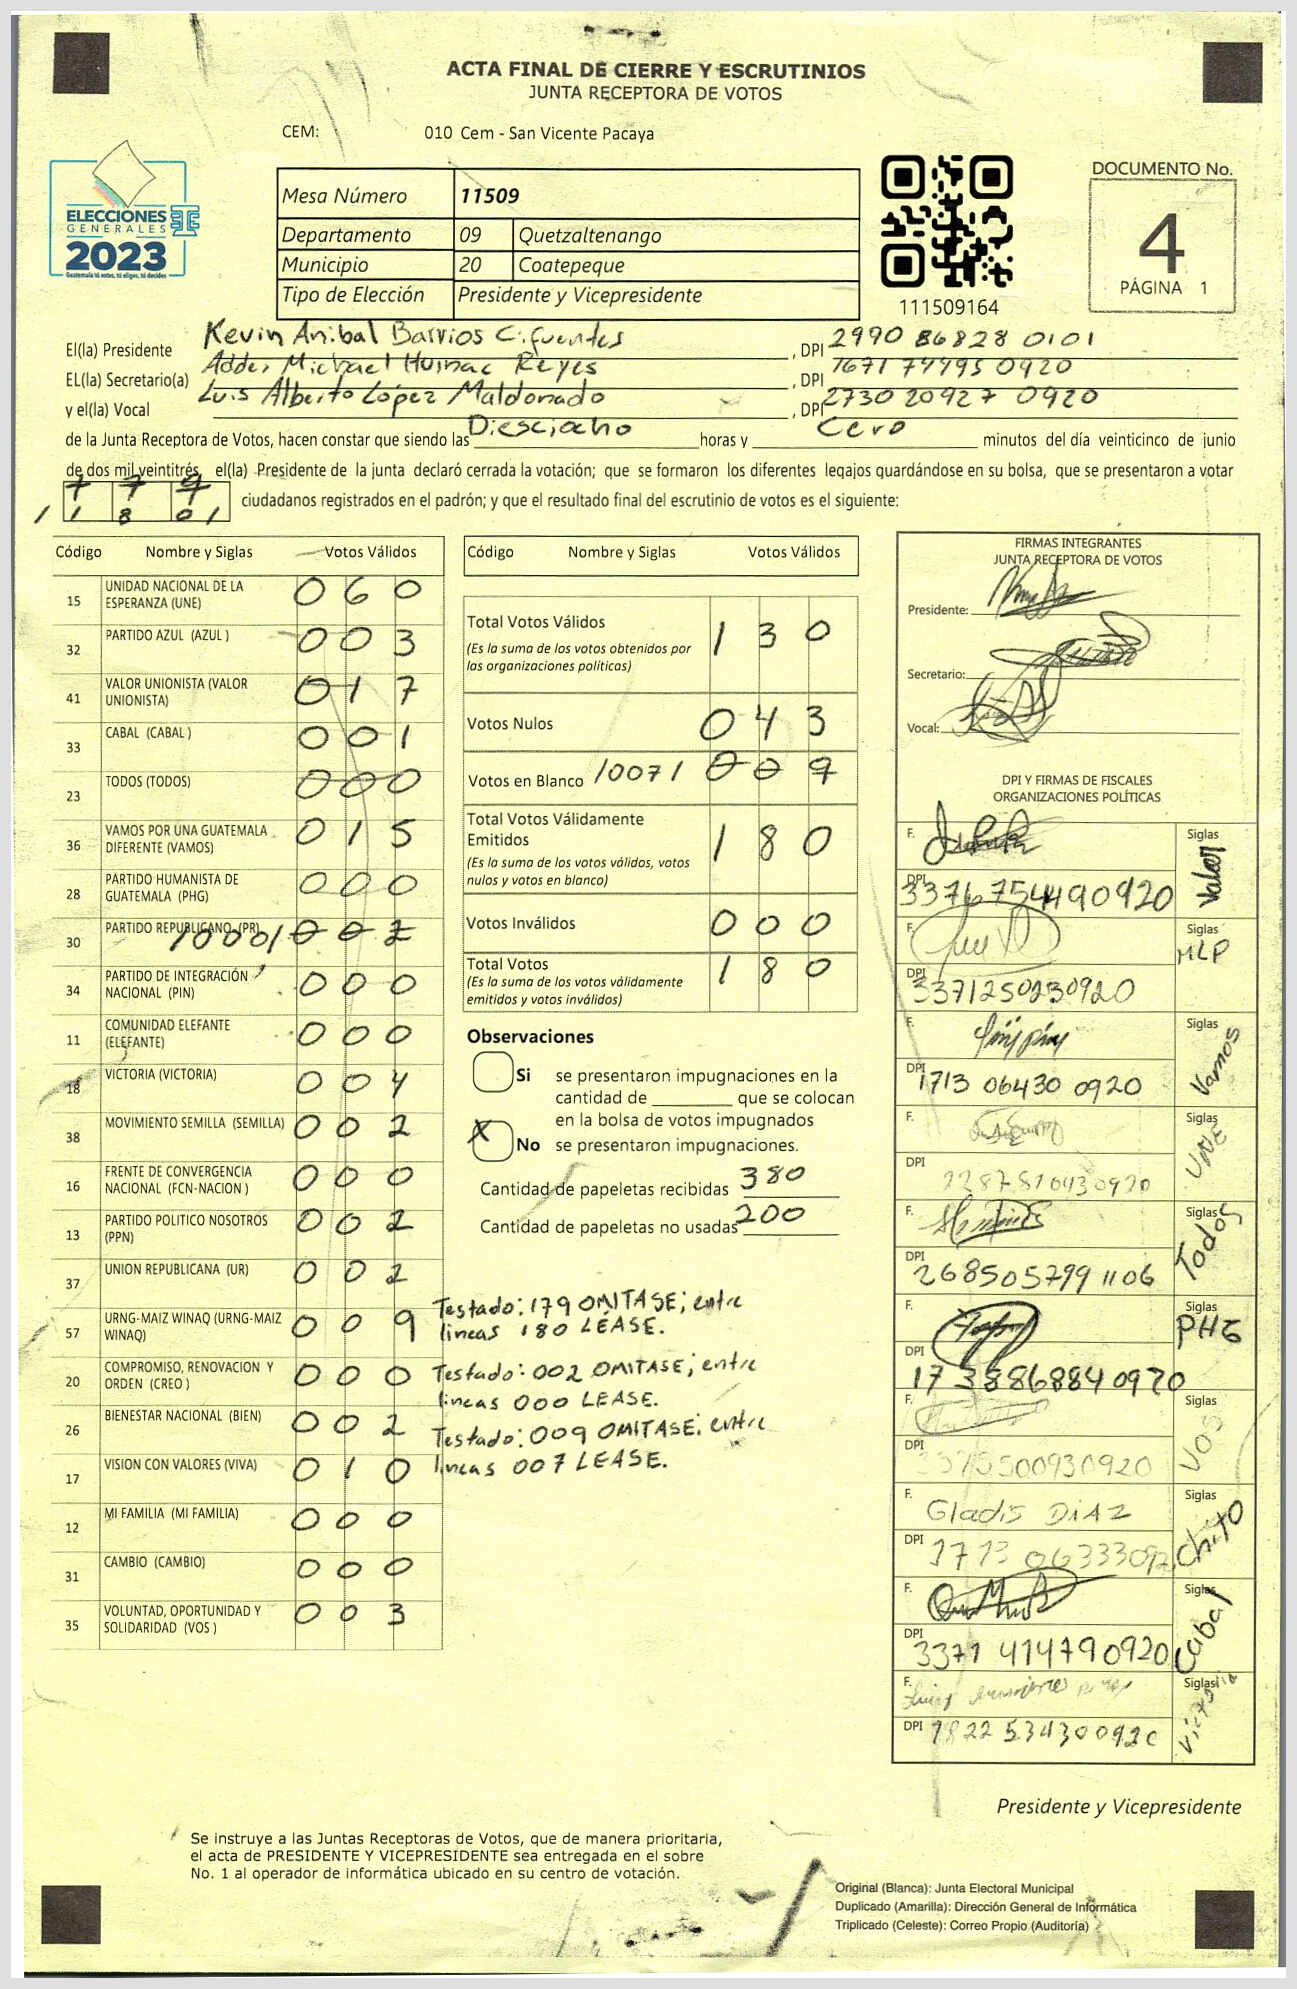 ACTA FINAL DE CIERRE Y ESCRUTINIOS
JUNTA RECEPTORA DE VOTOS
CEM: 010 Cem - San Vicente Pacaya
ELECCIONES
GENERALES
2023
Guatemala tú votas, tú eliges, tú decides
Mesa Número 11509
Departamento 09 Quetzaltenango
Municipio 20 Coatepeque
Tipo de Elección Presidente y Vicepresidente
111509164
DOCUMENTO No.
4
PÁGINA 1
El(la) Presidente Kevin Anibal Barrios Cifuentes, DPI 2990 86828 0101
EL(la) Secretario(a) Adder Michael Huinac Reyes, DPI 1671 74495 0920
y el(la) Vocal Luis Alberto López Maldonado, DPI 2730 20927 0920
de la Junta Receptora de Votos, hacen constar que siendo las Diesciocho horas y Cero minutos del día veinticinco de junio
de dos mil veintitrés, el(la) Presidente de la junta declaró cerrada la votación; que se formaron los diferentes legajos guardándose en su bolsa, que se presentaron a votar
/1 8 0/ ciudadanos registrados en el padrón; y que el resultado final del escrutinio de votos es el siguiente:
Código Nombre y Siglas Votos Válidos
15 UNIDAD NACIONAL DE LA ESPERANZA (UNE) 0 6 0
32 PARTIDO AZUL (AZUL ) 0 0 3
41 VALOR UNIONISTA (VALOR UNIONISTA) 0 1 7
33 CABAL (CABAL ) 0 0 1
23 TODOS (TODOS) 0 0 0
36 VAMOS POR UNA GUATEMALA DIFERENTE (VAMOS) 0 1 5
28 PARTIDO HUMANISTA DE GUATEMALA (PHG) 0 0 0
30 PARTIDO REPUBLICANO (PR) /000/ 0 0 2
34 PARTIDO DE INTEGRACIÓN NACIONAL (PIN) 0 0 0
11 COMUNIDAD ELEFANTE (ELEFANTE) 0 0 0
18 VICTORIA (VICTORIA) 0 0 4
38 MOVIMIENTO SEMILLA (SEMILLA) 0 0 2
16 FRENTE DE CONVERGENCIA NACIONAL (FCN-NACION ) 0 0 0
13 PARTIDO POLITICO NOSOTROS (PPN) 0 0 2
37 UNION REPUBLICANA (UR) 0 0 2
57 URNG-MAIZ WINAQ (URNG-MAIZ WINAQ) 0 0 9
20 COMPROMISO, RENOVACION Y ORDEN (CREO ) 0 0 0
26 BIENESTAR NACIONAL (BIEN) 0 0 2
17 VISION CON VALORES (VIVA) 0 1 0
12 MI FAMILIA (MI FAMILIA) 0 0 0
31 CAMBIO (CAMBIO) 0 0 0
35 VOLUNTAD, OPORTUNIDAD Y SOLIDARIDAD (VOS ) 0 0 3
Código Nombre y Siglas Votos Válidos
Total Votos Válidos 1 3 0
(Es la suma de los votos obtenidos por
las organizaciones políticas)
Votos Nulos 0 4 3
Votos en Blanco /007/ 0 0 9
Total Votos Válidamente
Emitidos 1 8 0
(Es la suma de los votos válidos, votos
nulos y votos en blanco)
Votos Inválidos 0 0 0
Total Votos 1 8 0
(Es la suma de los votos válidamente
emitidos y votos inválidos)
Observaciones
Si se presentaron impugnaciones en la
cantidad de que se colocan
en la bolsa de votos impugnados
X No se presentaron impugnaciones.
Cantidad de papeletas recibidas 380
Cantidad de papeletas no usadas 200
Testado: 179 OMITASE; entre
lineas 180 LEASE.
Testado: 002 OMITASE; entre
lineas 000 LEASE.
Testado: 009 OMITASE: entre
lineas 007 LEASE.
FIRMAS INTEGRANTES
JUNTA RECEPTORA DE VOTOS
Presidente:
Secretario:
Vocal:
DPI Y FIRMAS DE FISCALES
ORGANIZACIONES POLÍTICAS
F. Siglas Valor
DPI 3376754490920
F. Siglas MLP
DPI 3371250230920
F. Siglas Vamos
DPI 1713 06430 0920
F. Siglas UNE
DPI 2287810430920
F. Siglas Todos
DPI 268505799 1106
F. Siglas PHG
DPI
F. Siglas VOS
DPI
F. Gladis DIAZ Siglas Chito
DPI
F. Siglas Cabal
DPI 3371 414790920
F. Siglas Victoria
DPI 1822 53430092
Presidente y Vicepresidente
Se instruye a las Juntas Receptoras de Votos, que de manera prioritaria,
el acta de PRESIDENTE Y VICEPRESIDENTE sea entregada en el sobre
No. 1 al operador de informática ubicado en su centro de votación.
Original (Blanca): Junta Electoral Municipal
Duplicado (Amarilla): Dirección General de Informática
Triplicado (Celeste): Correo Propio (Auditoría)